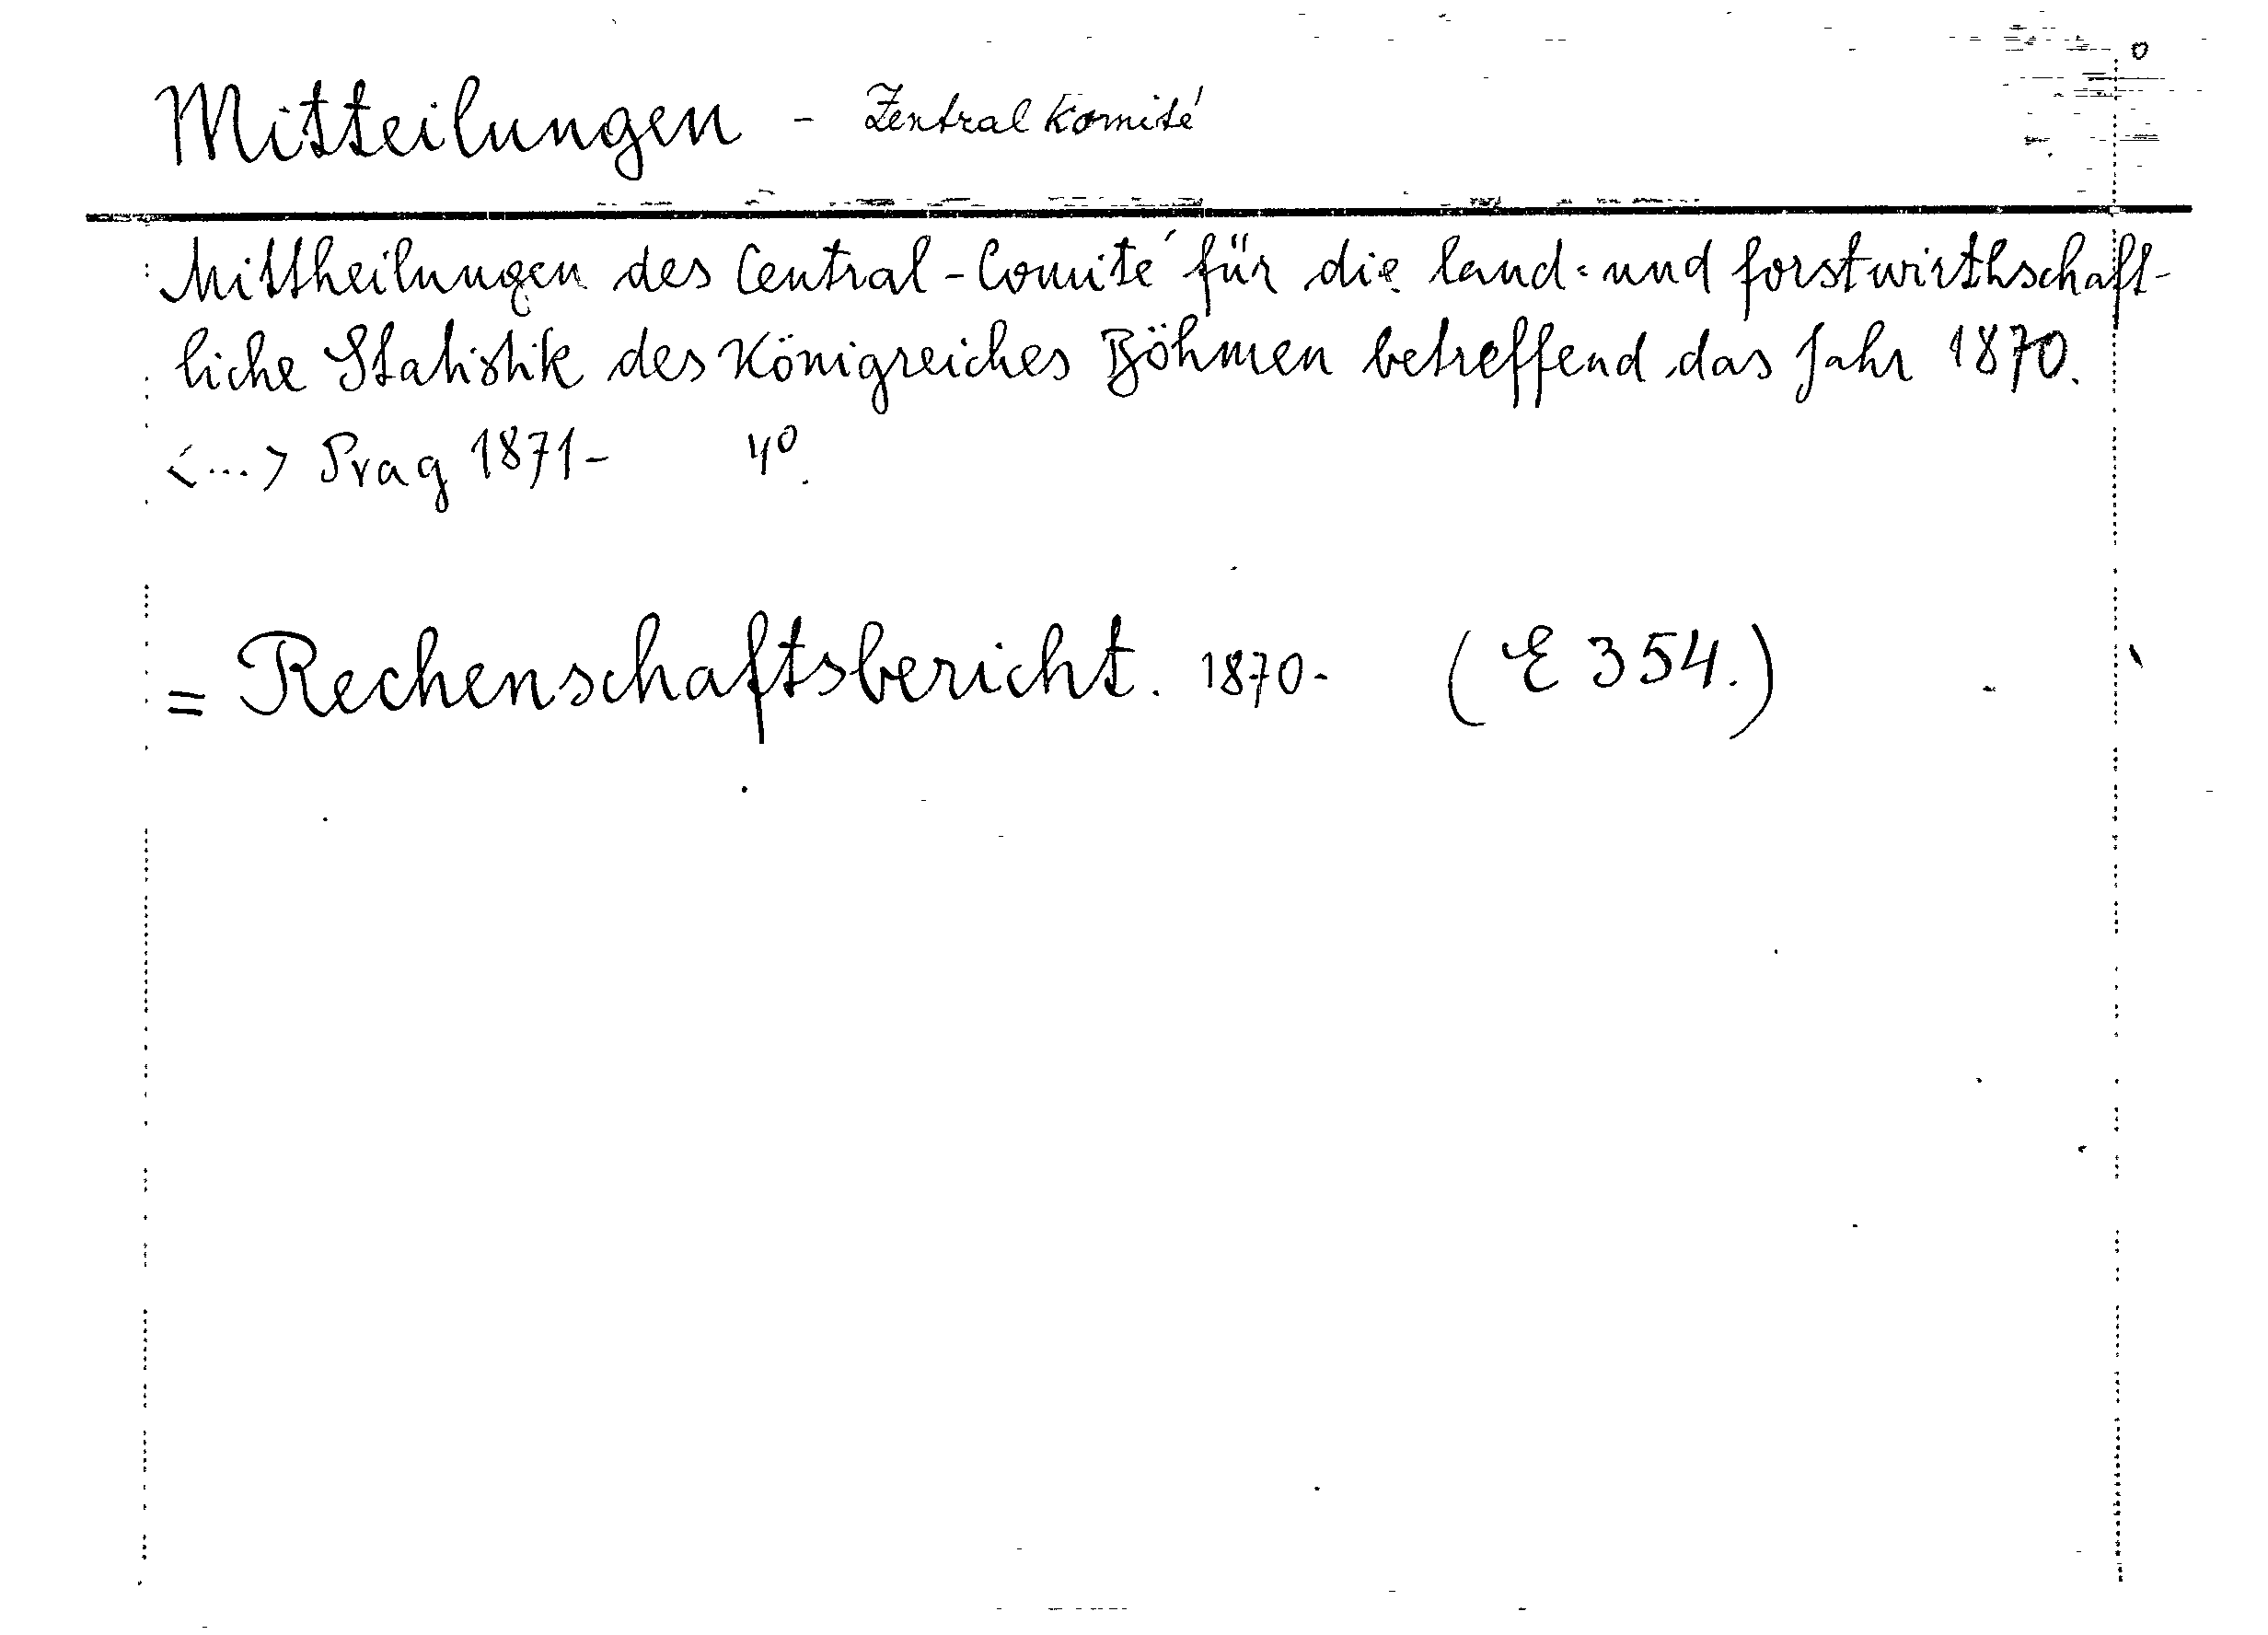 Mitteilungen - Zentral Komité
Mittheilungen des Central-Comité für die land= und forstwirthschaft-
liche Statistik des Königreiches Böhmen betreffend das Jahr 1870.
<...> Prag 1871- 4º.
= Rechenschaftsbericht. 1870- (E 354.)